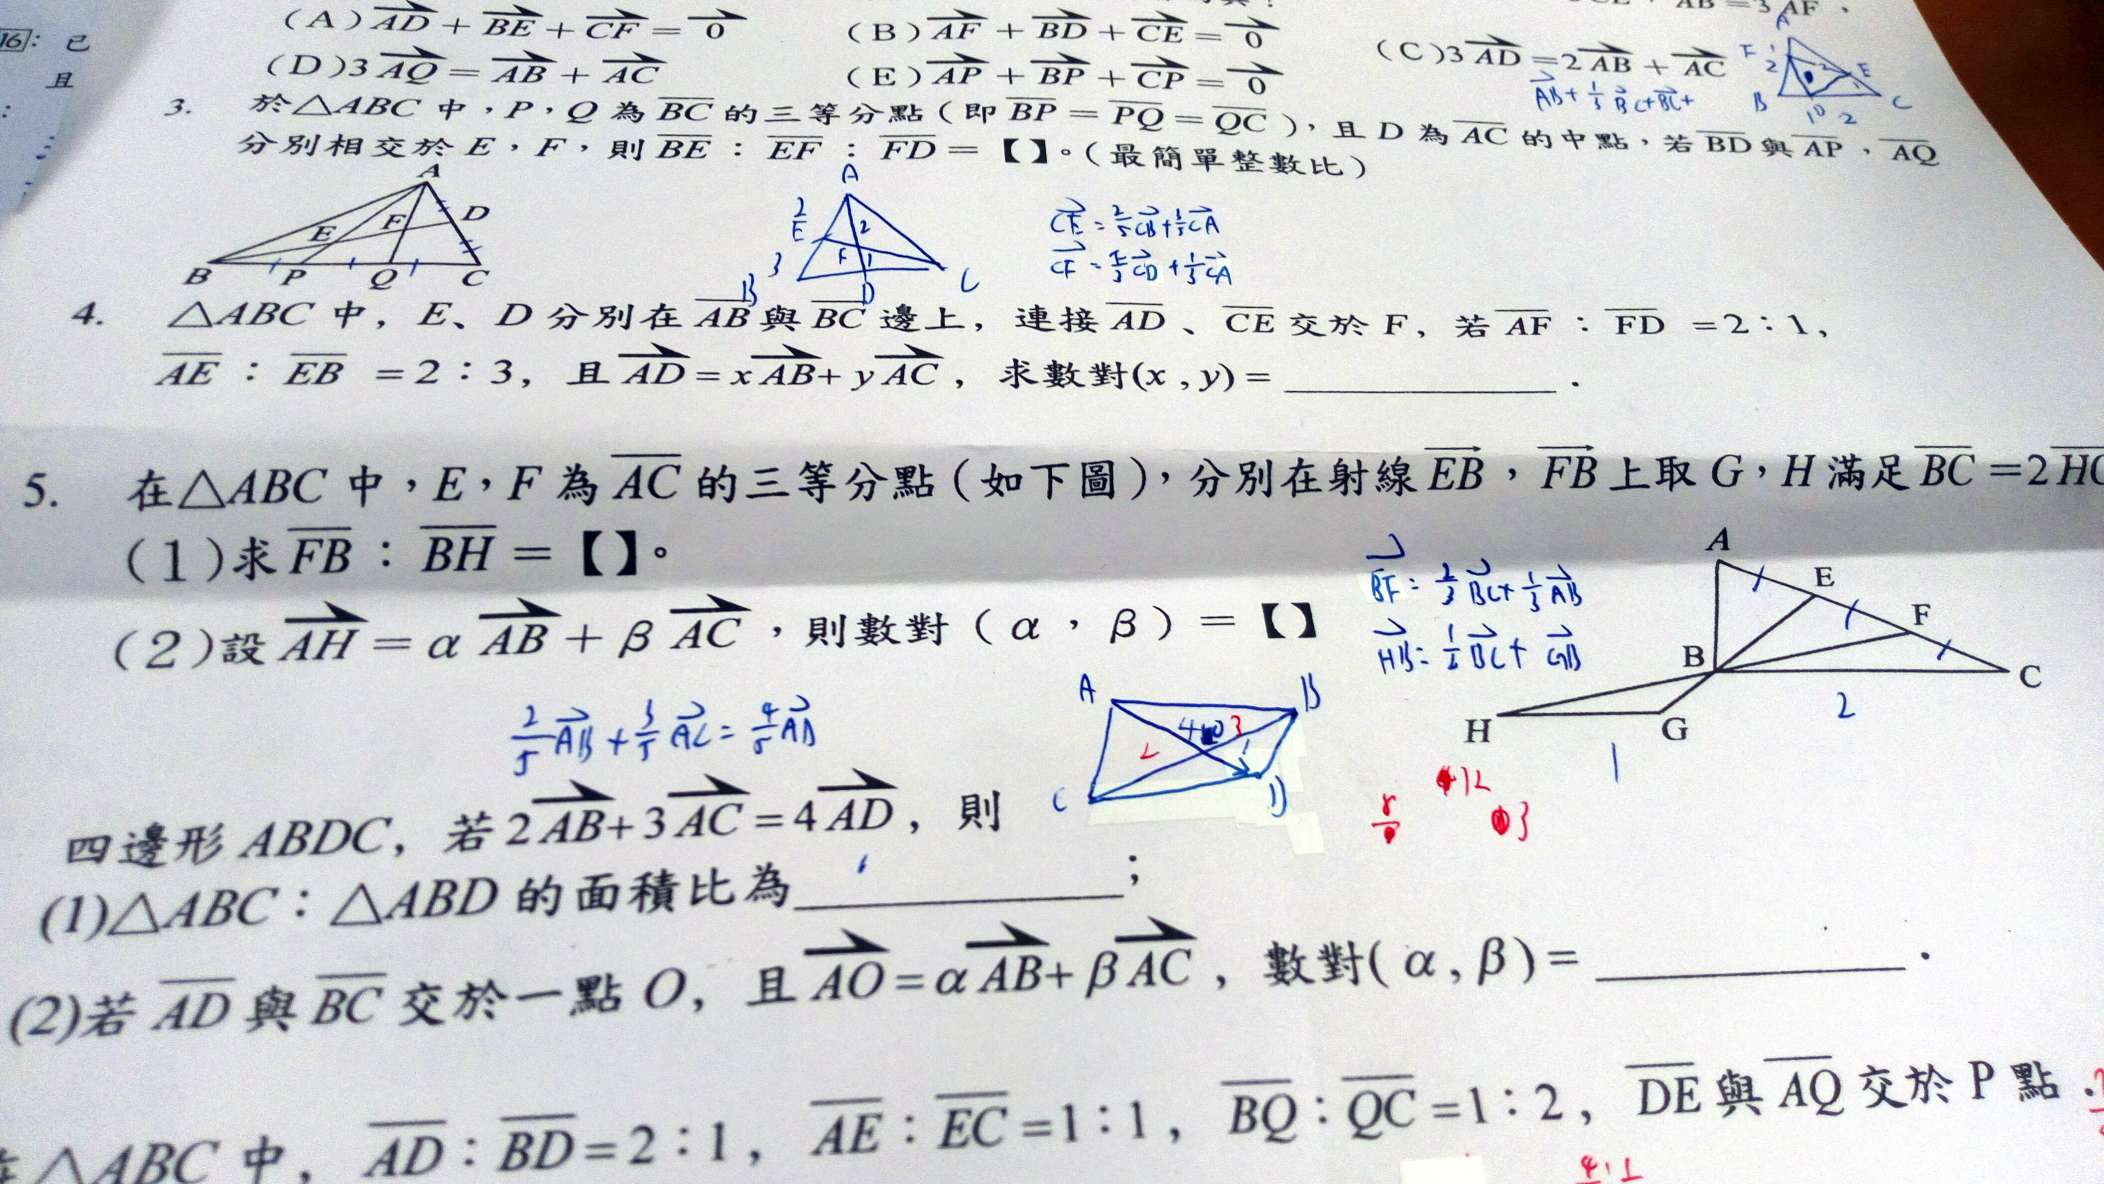 16: 已
且
(A) AD + BE + CF = 0
(B) AF + BD + CE = 0
(C) 3AD = 2AB + AC
(D) 3AQ = AB + AC
(E) AP + BP + CP = 0
A
F 1
2
E
B
C
2
3. 於△ABC 中,P,Q 為 BC 的三等分點(即 BP = PQ = QC),且 D 為 AC 的中點,若 BD 與 AP,AQ
分別相交於 E,F,則 BE : EF : FD =【】。(最簡單整數比)
A
D
F
E
B P Q C
A
2
E
2
3
F
1
B D C
CE = 2/5 CB + 3/5 CA
4. △ABC 中, E、D 分別在 AB 與 BC 邊上, 連接 AD 、 CE 交於 F, 若 AF : FD = 2:1,
AE : EB = 2:3, 且 AD = x AB + y AC , 求數對(x , y) = ________ .
5. 在△ABC 中,E,F 為 AC 的三等分點(如下圖),分別在射線 EB,FB 上取 G,H 滿足 BC = 2
(1)求 FB : BH =【】。
(2)設 AH = α AB + β AC ,則數對(α,β)=【】
BF = 2/3 BC + 1/3 AB
A
E
F
B
C
H
G
2
1
2/5 AB + 3/5 AC = 4/5 AD
A
B
C
D
12
3
四邊形 ABDC, 若 2AB + 3AC = 4AD , 則
(1)△ABC : △ABD 的面積比為________;
(2)若 AD 與 BC 交於一點 O, 且 AO = αAB + βAC , 數對(α,β) = ________ .
△ABC 中, AD : BD = 2:1, AE : EC = 1:1, BQ : QC = 1:2, DE 與 AQ 交於 P 點
4:1